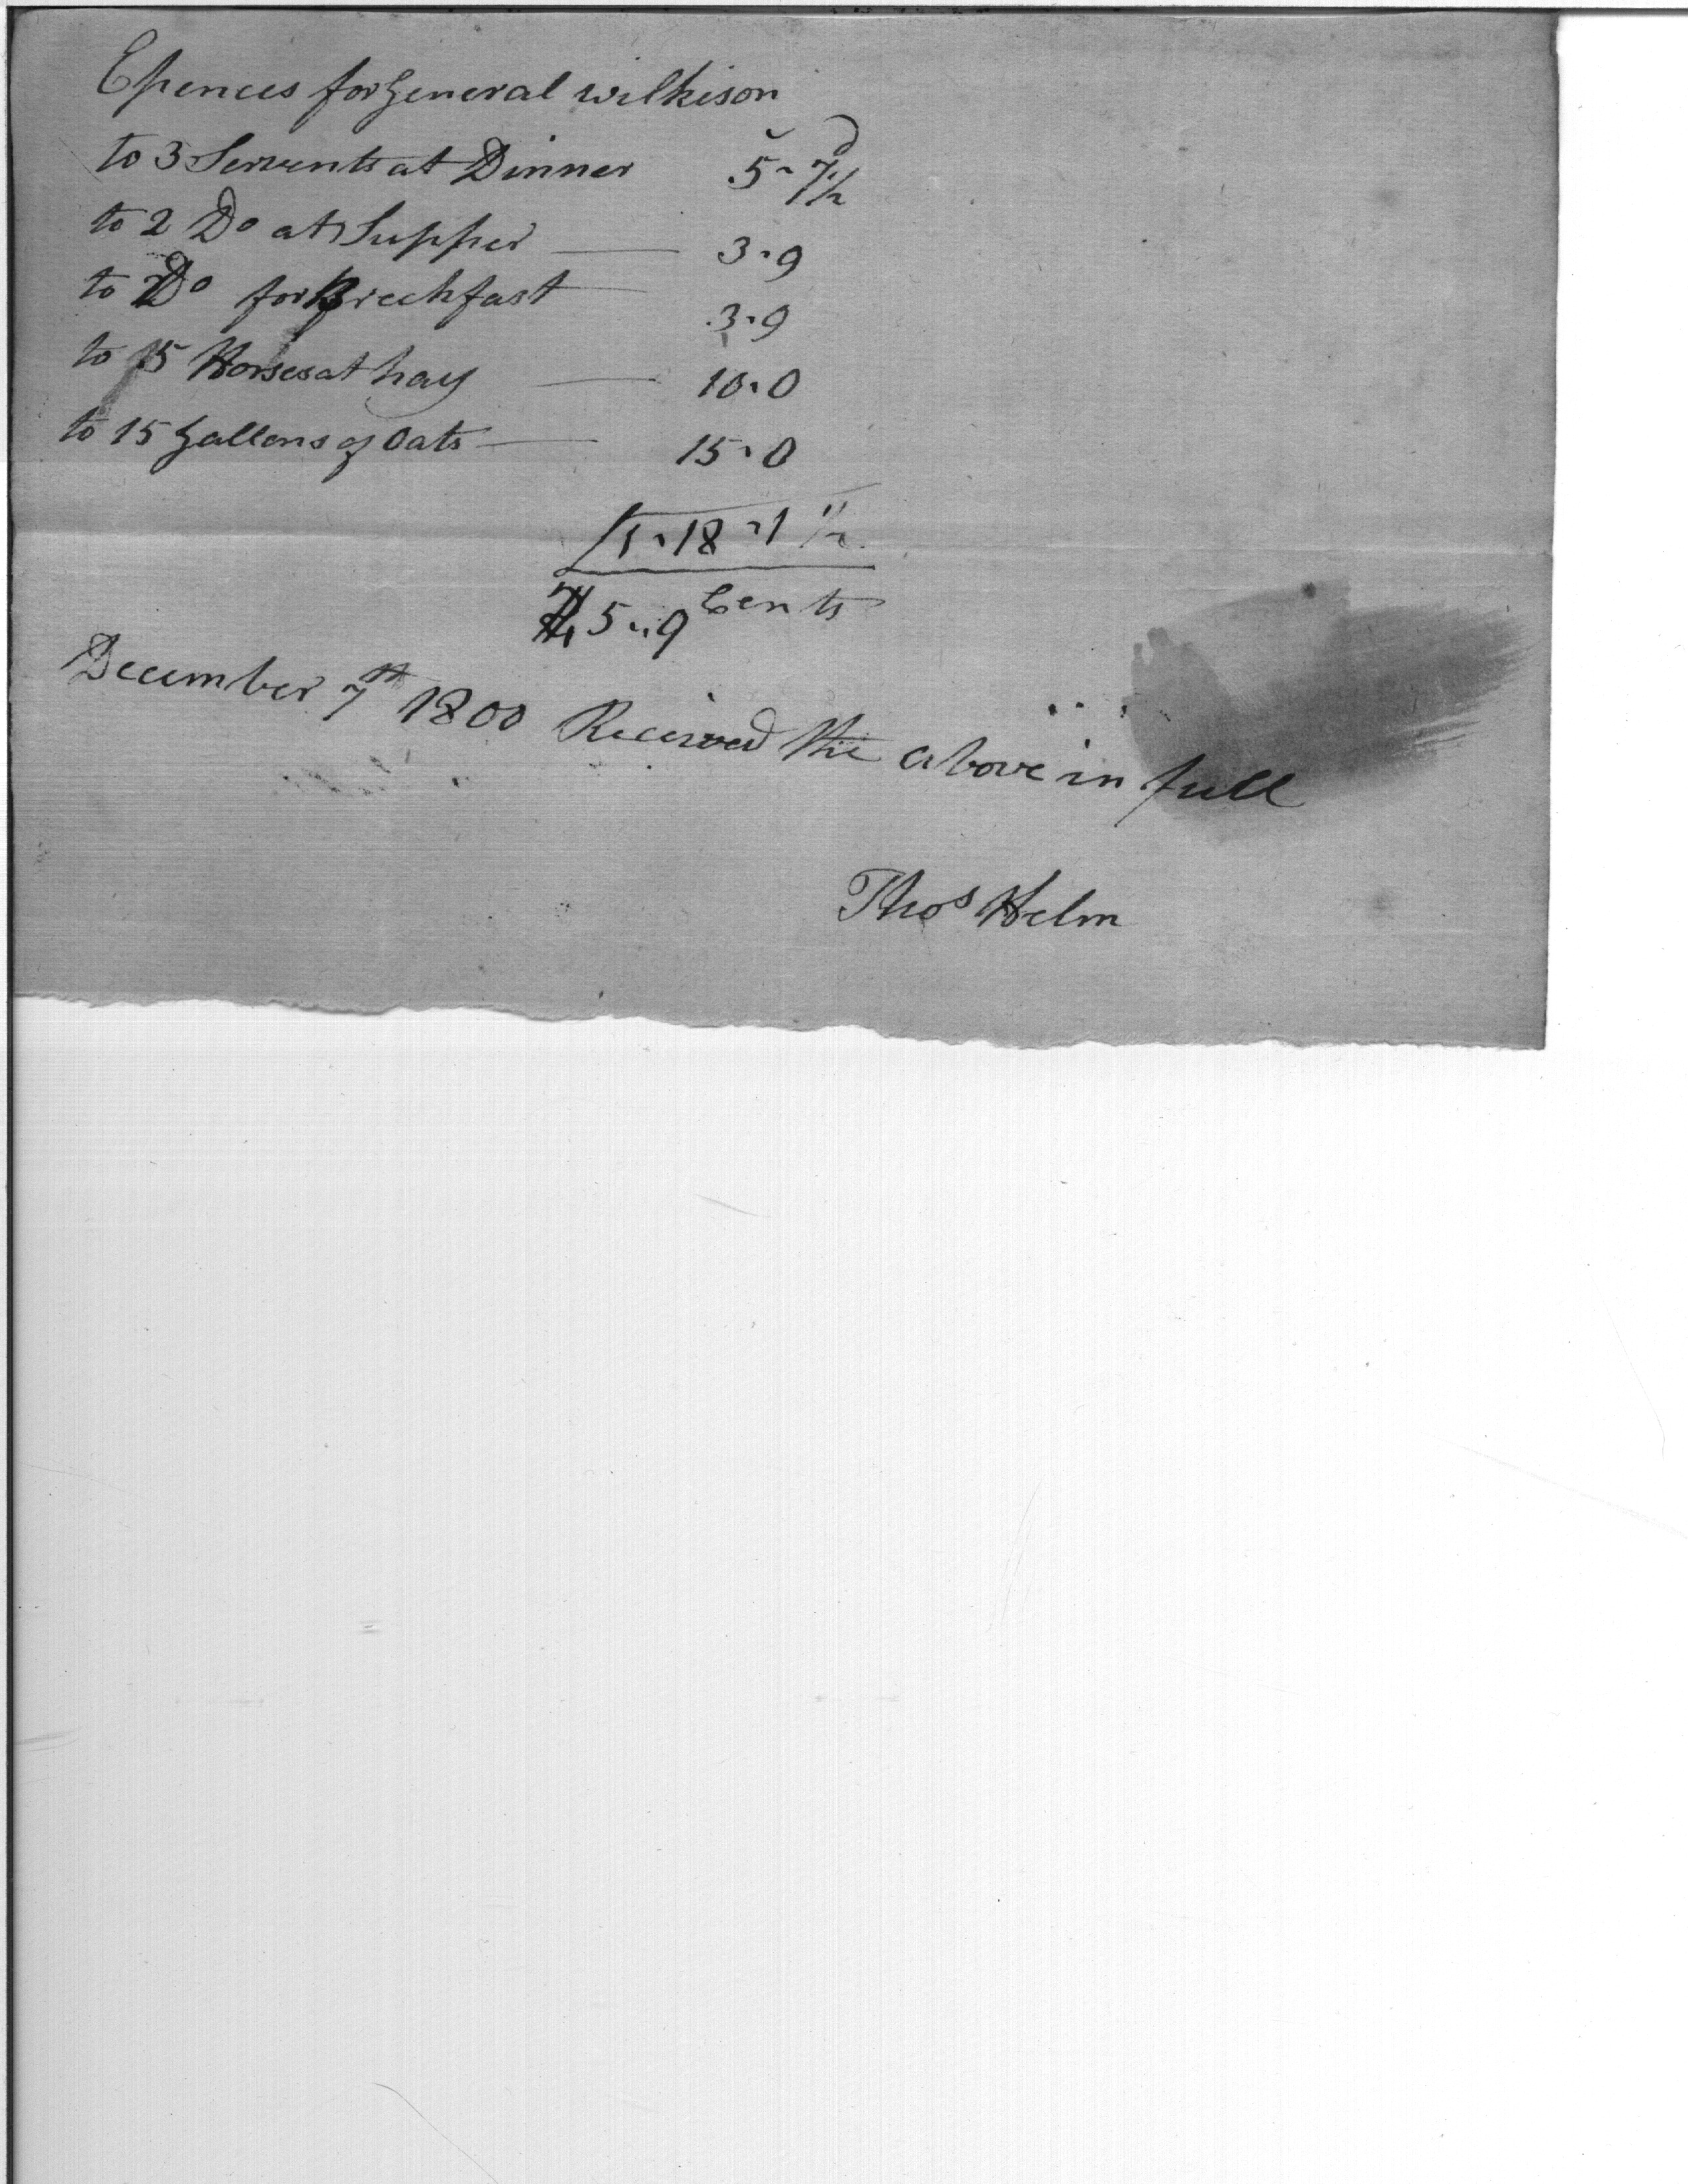 Epences for General wilkison
s d
to 3 Servents at Dinner 5 - 7 1/2
to 2 Do at Supper — 3 - 9
to Do for Breckfast — 3 - 9
to 15 Horses at hay — 10 - 0
to 15 Gallons of Oats — 15 - 0
£1 - 18 - 1 1/2
5 .. 9 Cents
December 7th 1800 Received the above in full
Thos Helm